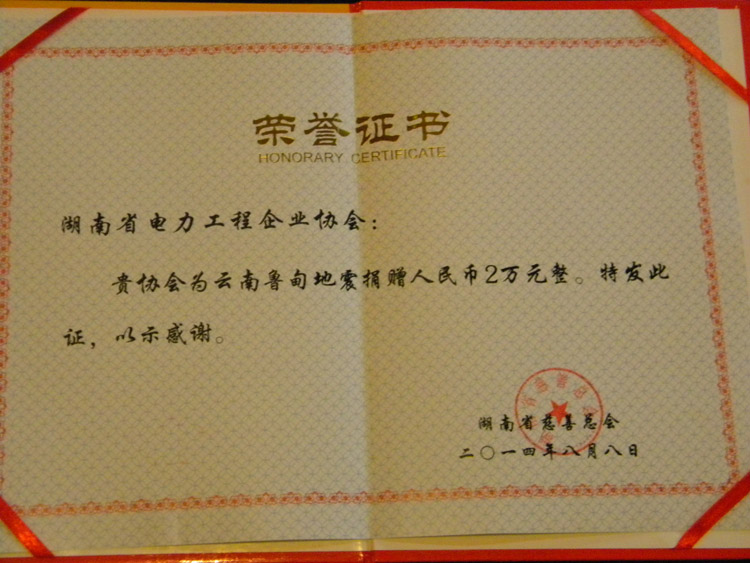 荣誉证书
HONORARY CERTIFICATE
湖南省电力工程企业协会：
贵协会为云南鲁甸地震捐赠人民币2万元整。特发此
证，以示感谢。
湖南省慈善总会
二〇一四年八月八日